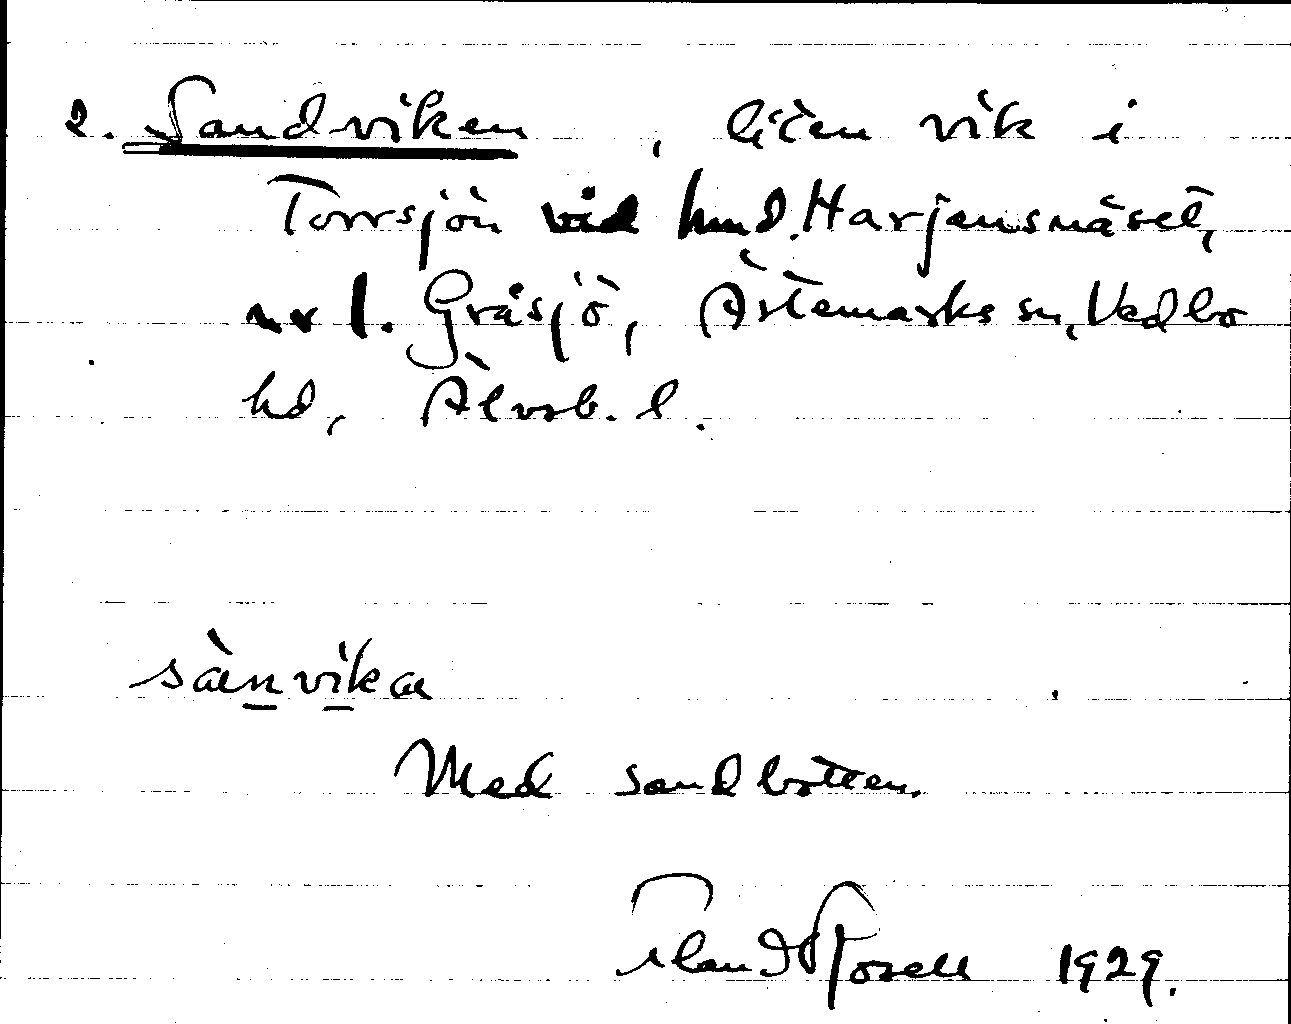 2. Sandviken, liten vik i
Torrsjön vid hmd. Harjensnäset,
nr 1. Gråsjö, Ärtemarks sn, Vedbo
hd, Älvsb. l.
sànvika
Med sandbotten.
1929.